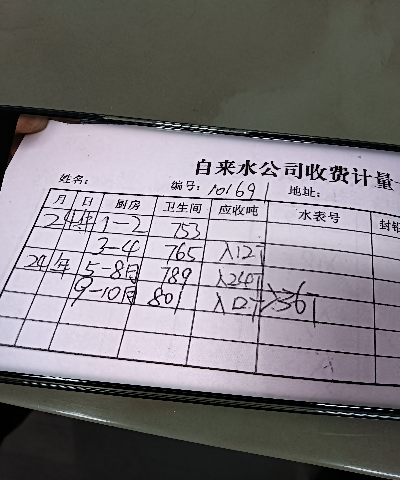 自来水公司收费计量
姓名: 编号: 101691 地址:
月 日 厨房 卫生间 应收吨 水表号
24年 1-2 753
3-4 765 入12T
24年 5-8月 789 入24T
9-10月 801 入12T